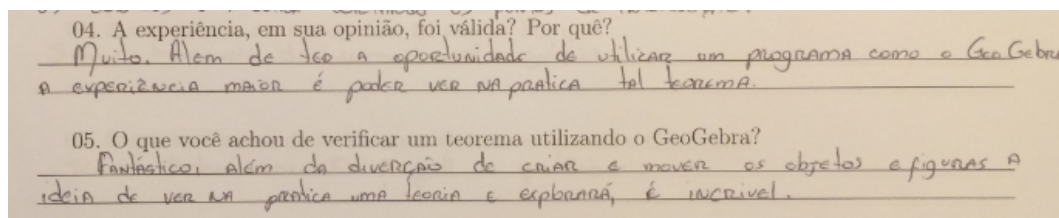 04. A experiência, em sua opinião, foi válida? Por quê?
Muito. Alem de tec a oportunidade de utilizar um programa como o GeoGebra
a experiência maior é poder ver na pratica tal teorema.
05. O que você achou de verificar um teorema utilizando o GeoGebra?
Fantástico, além da diverção de criar e mover os objetos e figuras a
ideia de ver na pratica uma teoria e explorará, é incrivel.